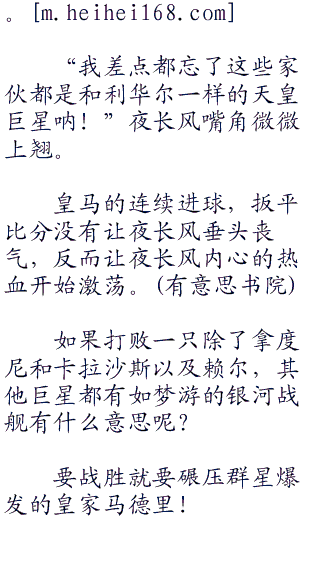 。[m.heihei168.com]
“我差点都忘了这些家
伙都是和利华尔一样的天皇
巨星呐！”夜长风嘴角微微
上翘。
皇马的连续进球，扳平
比分没有让夜长风垂头丧
气，反而让夜长风内心的热
血开始激荡。(有意思书院)
如果打败一只除了拿度
尼和卡拉沙斯以及赖尔，其
他巨星都有如梦游的银河战
舰有什么意思呢？
要战胜就要碾压群星爆
发的皇家马德里！